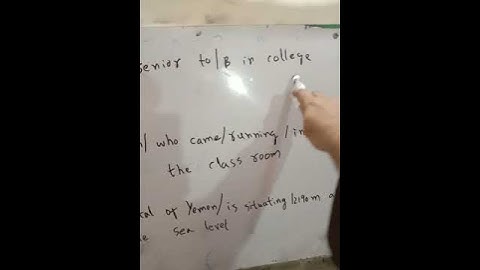 senior to/B in college
/ who came/running/in
the class room
of Yemen/is situating/2190m a
sea level